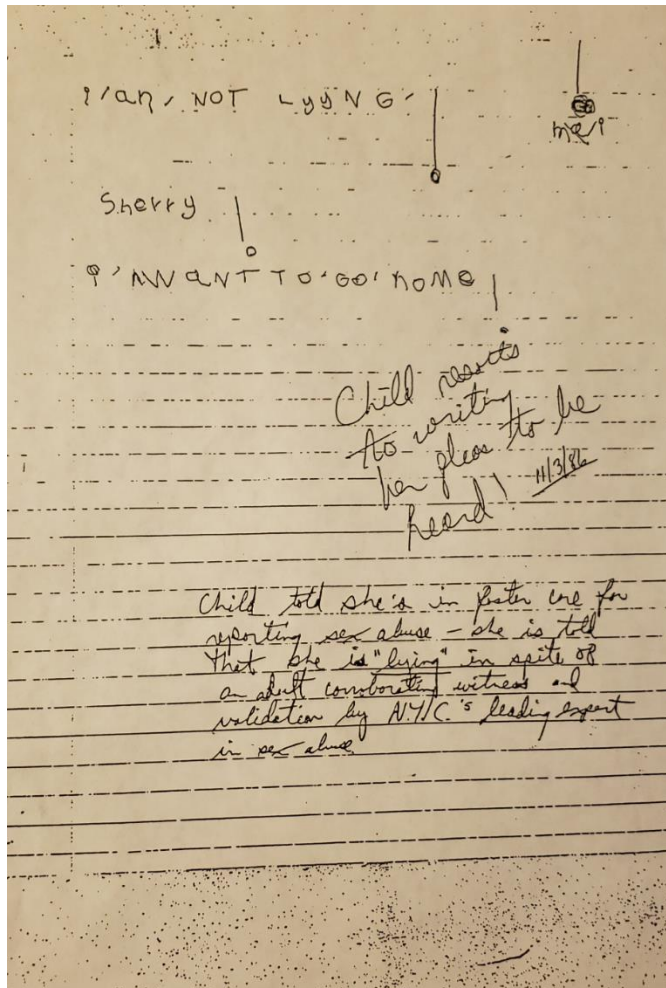 I'am, NOT LyyNG'
mari
Sherry
I'WANT TO'GO'hOME
Child resorts
to writing
her pleas to be
heard! 11/3/86
Child told she's in foster care for
reporting sex abuse – she is told
that she is "lying" in spite of
an adult corroborating witness and
validation by N.Y.C.'s leading expert
in sex abuse